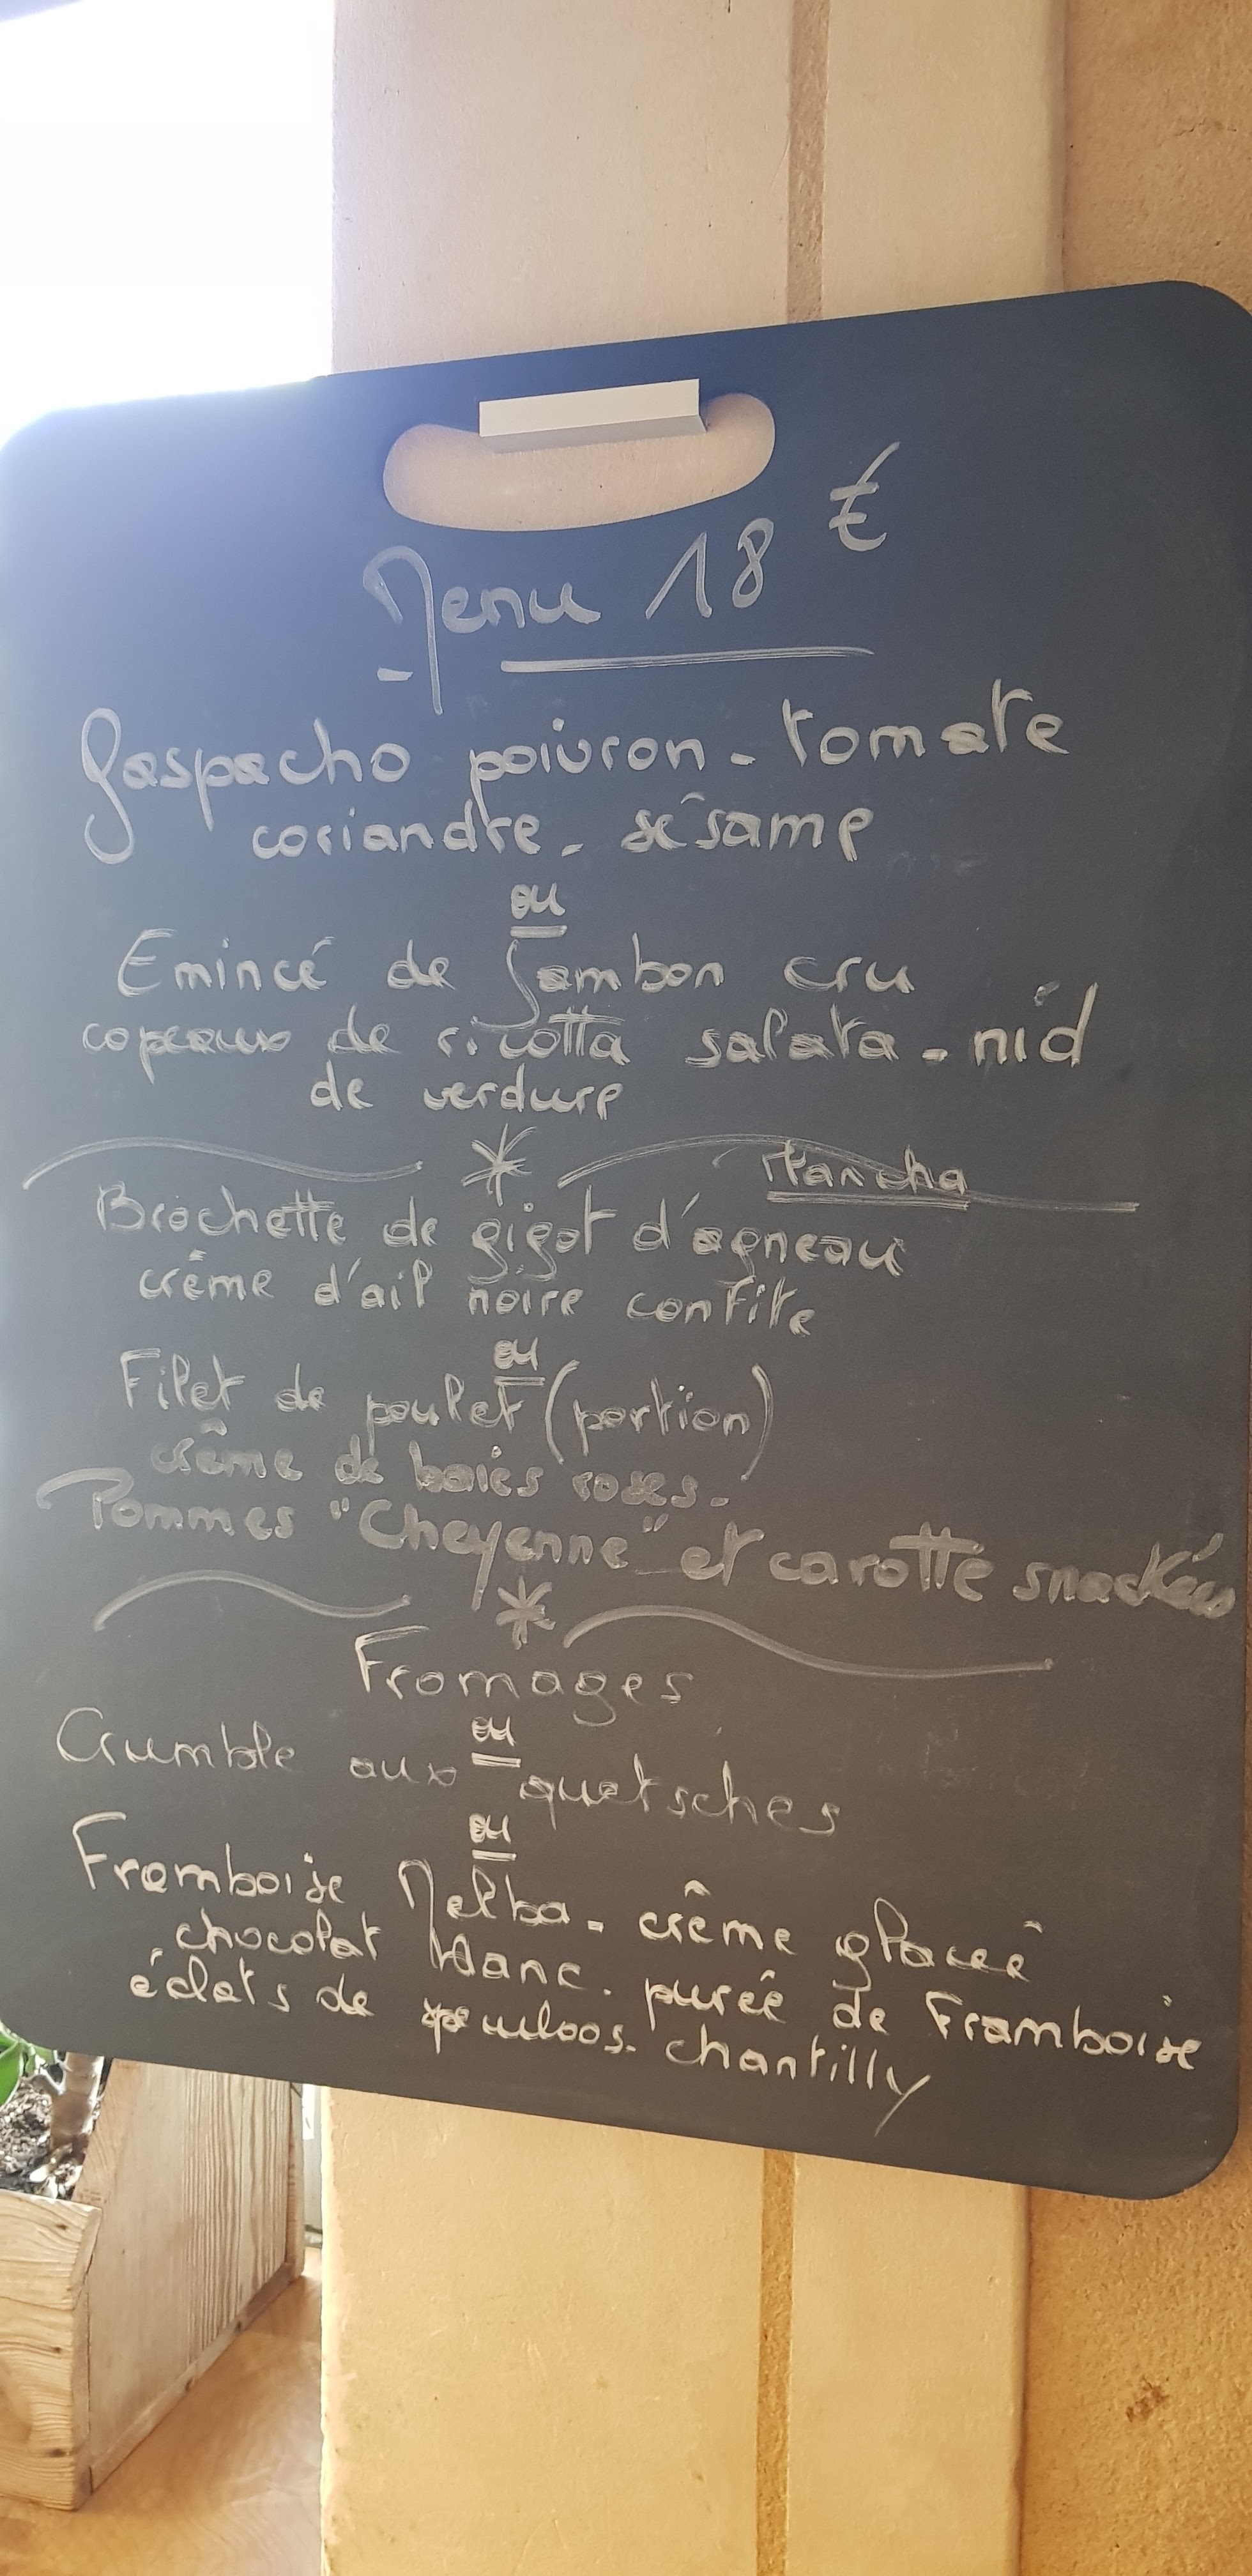 Menu 18 €
Gaspacho poivron - tomate
coriandre - sésame
ou
Emincé de Jambon cru
copeaux de ricotta salata - nid
de verdure
Plancha
Brochette de gigot d'agneau
crème d'ail noire confite
ou
Filet de poulet (portion)
crème de baies roses -
Pommes "Cheyenne" et carotte snackées
Fromages
ou
Crumble aux quetsches
ou
Framboise Melba - crème glacée
chocolat blanc. purée de Framboise
éclats de speculoos - chantilly